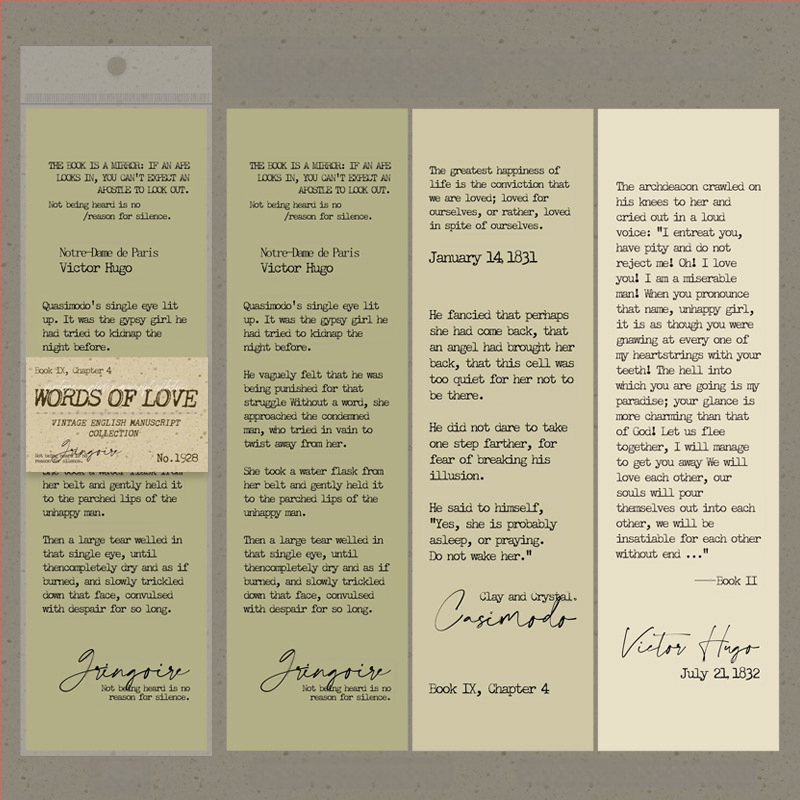 THE BOOK IS A MIRROR: IF AN APE
LOOKS IN, YOU CAN'T EXPECT AN
APOSTLE TO LOOK OUT.
Not being heard is no
/reason for silence.
Notre-Dame de Paris
Victor Hugo
Quasimodo's single eye lit
up. It was the gypsy girl he
had tried to kidnap the
night before.
Book IX, Chapter 4
WORDS OF LOVE
VINTAGE ENGLISH MANUSCRIPT
COLLECTION
Gringoire
Not being heard is no
reason for silence.
No.1928
She took a water flask from
her belt and gently held it
to the parched lips of the
unhappy man.
Then a large tear welled in
that single eye, until
thencompletely dry and as if
burned, and slowly trickled
down that face, convulsed
with despair for so long.
Gringoire
Not being heard is no
reason for silence.
THE BOOK IS A MIRROR: IF AN APE
LOOKS IN, YOU CAN'T EXPECT AN
APOSTLE TO LOOK OUT.
Not being heard is no
/reason for silence.
Notre-Dame de Paris
Victor Hugo
Quasimodo's single eye lit
up. It was the gypsy girl he
had tried to kidnap the
night before.
He vaguely felt that he was
being punished for that
struggle Without a word, she
approached the condemned
man, who tried in vain to
twist away from her.
She took a water flask from
her belt and gently held it
to the parched lips of the
unhappy man.
Then a large tear welled in
that single eye, until
thencompletely dry and as if
burned, and slowly trickled
down that face, convulsed
with despair for so long.
Gringoire
Not being heard is no
reason for silence.
The greatest happiness of
life is the conviction that
we are loved; loved for
ourselves, or rather, loved
in spite of ourselves.
January 14, 1831
He fancied that perhaps
she had come back, that
an angel had brought her
back, that this cell was
too quiet for her not to
be there.
He did not dare to take
one step farther, for
fear of breaking his
illusion.
He said to himself,
"Yes, she is probably
asleep, or praying.
Do not wake her."
Clay and Crystal.
Casimodo
Book IX, Chapter 4
The archdeacon crawled on
his knees to her and
cried out in a loud
voice: "I entreat you,
have pity and do not
reject me! Oh! I love
you! I am a miserable
man! When you pronounce
that name, unhappy girl,
it is as though you were
gnawing at every one of
my heartstrings with your
teeth! The hell into
which you are going is my
paradise; your glance is
more charming than that
of God! Let us flee
together, I will manage
to get you away We will
love each other, our
souls will pour
themselves out into each
other, we will be
insatiable for each other
without end ..."
——Book II
Victor Hugo
July 21, 1832